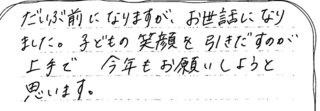 だいぶ前になりますが、お世話になり
ました。子どもの笑顔を引きだすのが
上手で 今年もお願いしようと
思います。